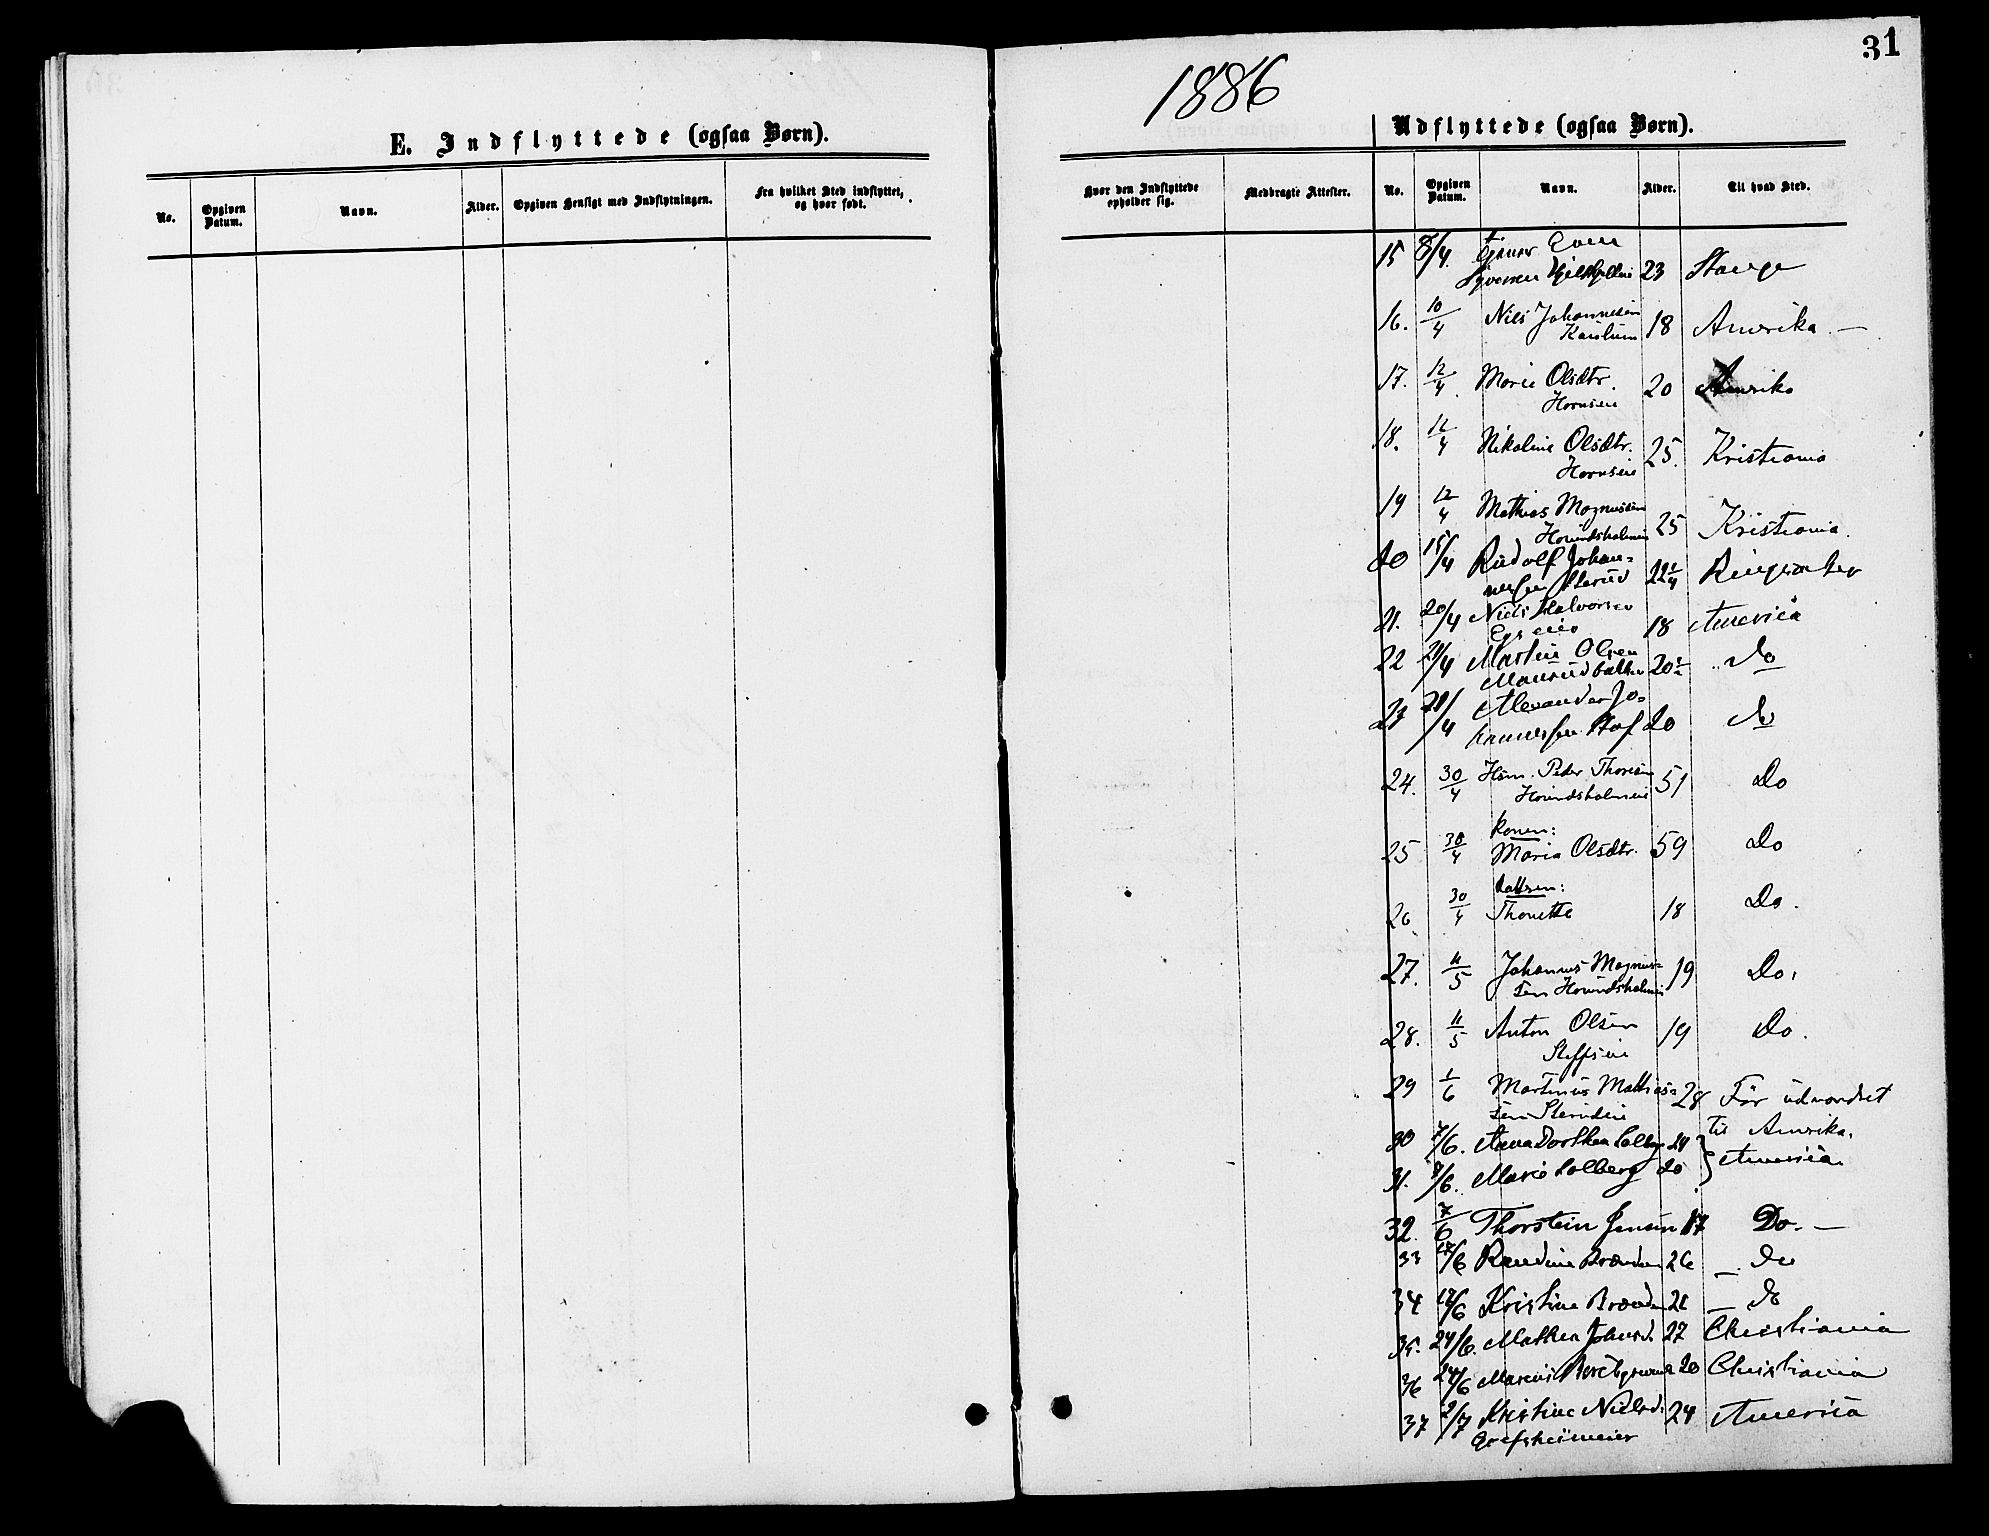 31
1886
E. Indflyttede (ogsaa Børn).
Udflyttede (ogsaa Børn).
No. Opgiven Datum. Navn. Alder. Opgiven Hensigt med Indflytningen. Fra hvilket Sted indflyttet, og hvor født.
Hvor den Indflyttede opholder sig. Medbragte Attester. No. Opgiven Datum. Navn. Alder. Til hvad Sted.
15 8/4. Even
23 Stange
16. 10/4 Nils Johannesen 18 Amerika —
17. 12/4 Marie Olsdtr. 20 Amerika
Hornseie
18. 12/4 Nikoline Olsdtr. 25. Kristiania
Hornseie
19 12/4 Mathias Magnussen 25 Kristiania.
Hovindsholmeie
20 15/4 Rudolf Johan-
nessen 22 1/4 Ringsaker
21. 20/4 Niels Halvorsen 18 America
22 21/4 Olsen
20 Do
23 21/4 Alexander Jo-
hannessen Hof 20 Do
24. 30/4 Hsm. Peder Thorsen 51 Do
Hovindsholmeie
Konen:
25 30/4 Maria Olsdtr. 59 Do
Datteren:
26 30/4 Thonette 18 Do.
27. 11/5 Johannes Magnus- 19 Do.
sen Hovindsholmeie
28. 11/5 Anton Olsen 19 Do.
29 1/6 Martinus Mathias- 28 Før udvandret
sen til Amerika.
30 7/6. Anna Dorthea Solberg 24
31. 7/6. Marie Solberg 20 America
32. 7/6 Thorstein Jensen 17 Do. —
33 17/6 Randine Brænden 26 — Do
34 17/6 Kristine Brænden 21 — Do
35. 24/6. Mathea Johnsd. 27 Christiania
36 24/6 20 Christiania
37 2/7 Kristine Nielsd. 24 America
Grefsheimeier